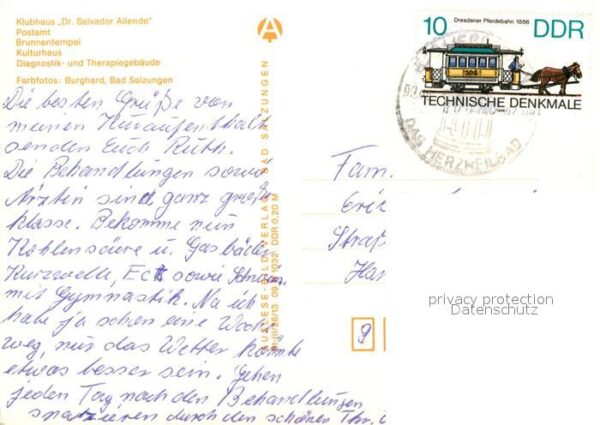 Klubhaus „Dr. Salvador Allende"
Postamt
Brunnentempel
Kulturhaus
Diagnostik- und Therapiegebäude
Farbfotos: Burghard, Bad Salzungen
Die besten Grüße von
meinen Kuraufenthalt
senden Euch Ruth.
Die Behandlungen sowie
Ärztin sind ganz große
Klasse. Bekomme nun
Kohlensäure u. Gasbäder
Kurzwelle, sowie
mit Gymnastik. Na ich
habe ja schon eine Woche
weg, nur das Wetter könnte
etwas besser sein. Gehen
jeden Tag nach den Behandlungen
spazieren durch den schönen Thr.
AUSLESE-BILD-VERLAG BAD SALZUNGEN
DDR 0,20 M
10 Dresdener Pferdebahn 1886 DDR
TECHNISCHE DENKMALE
DAS HERZHEILBAD
Fam.
Eric
Straß
Ha
privacy protection
Datenschutz
9